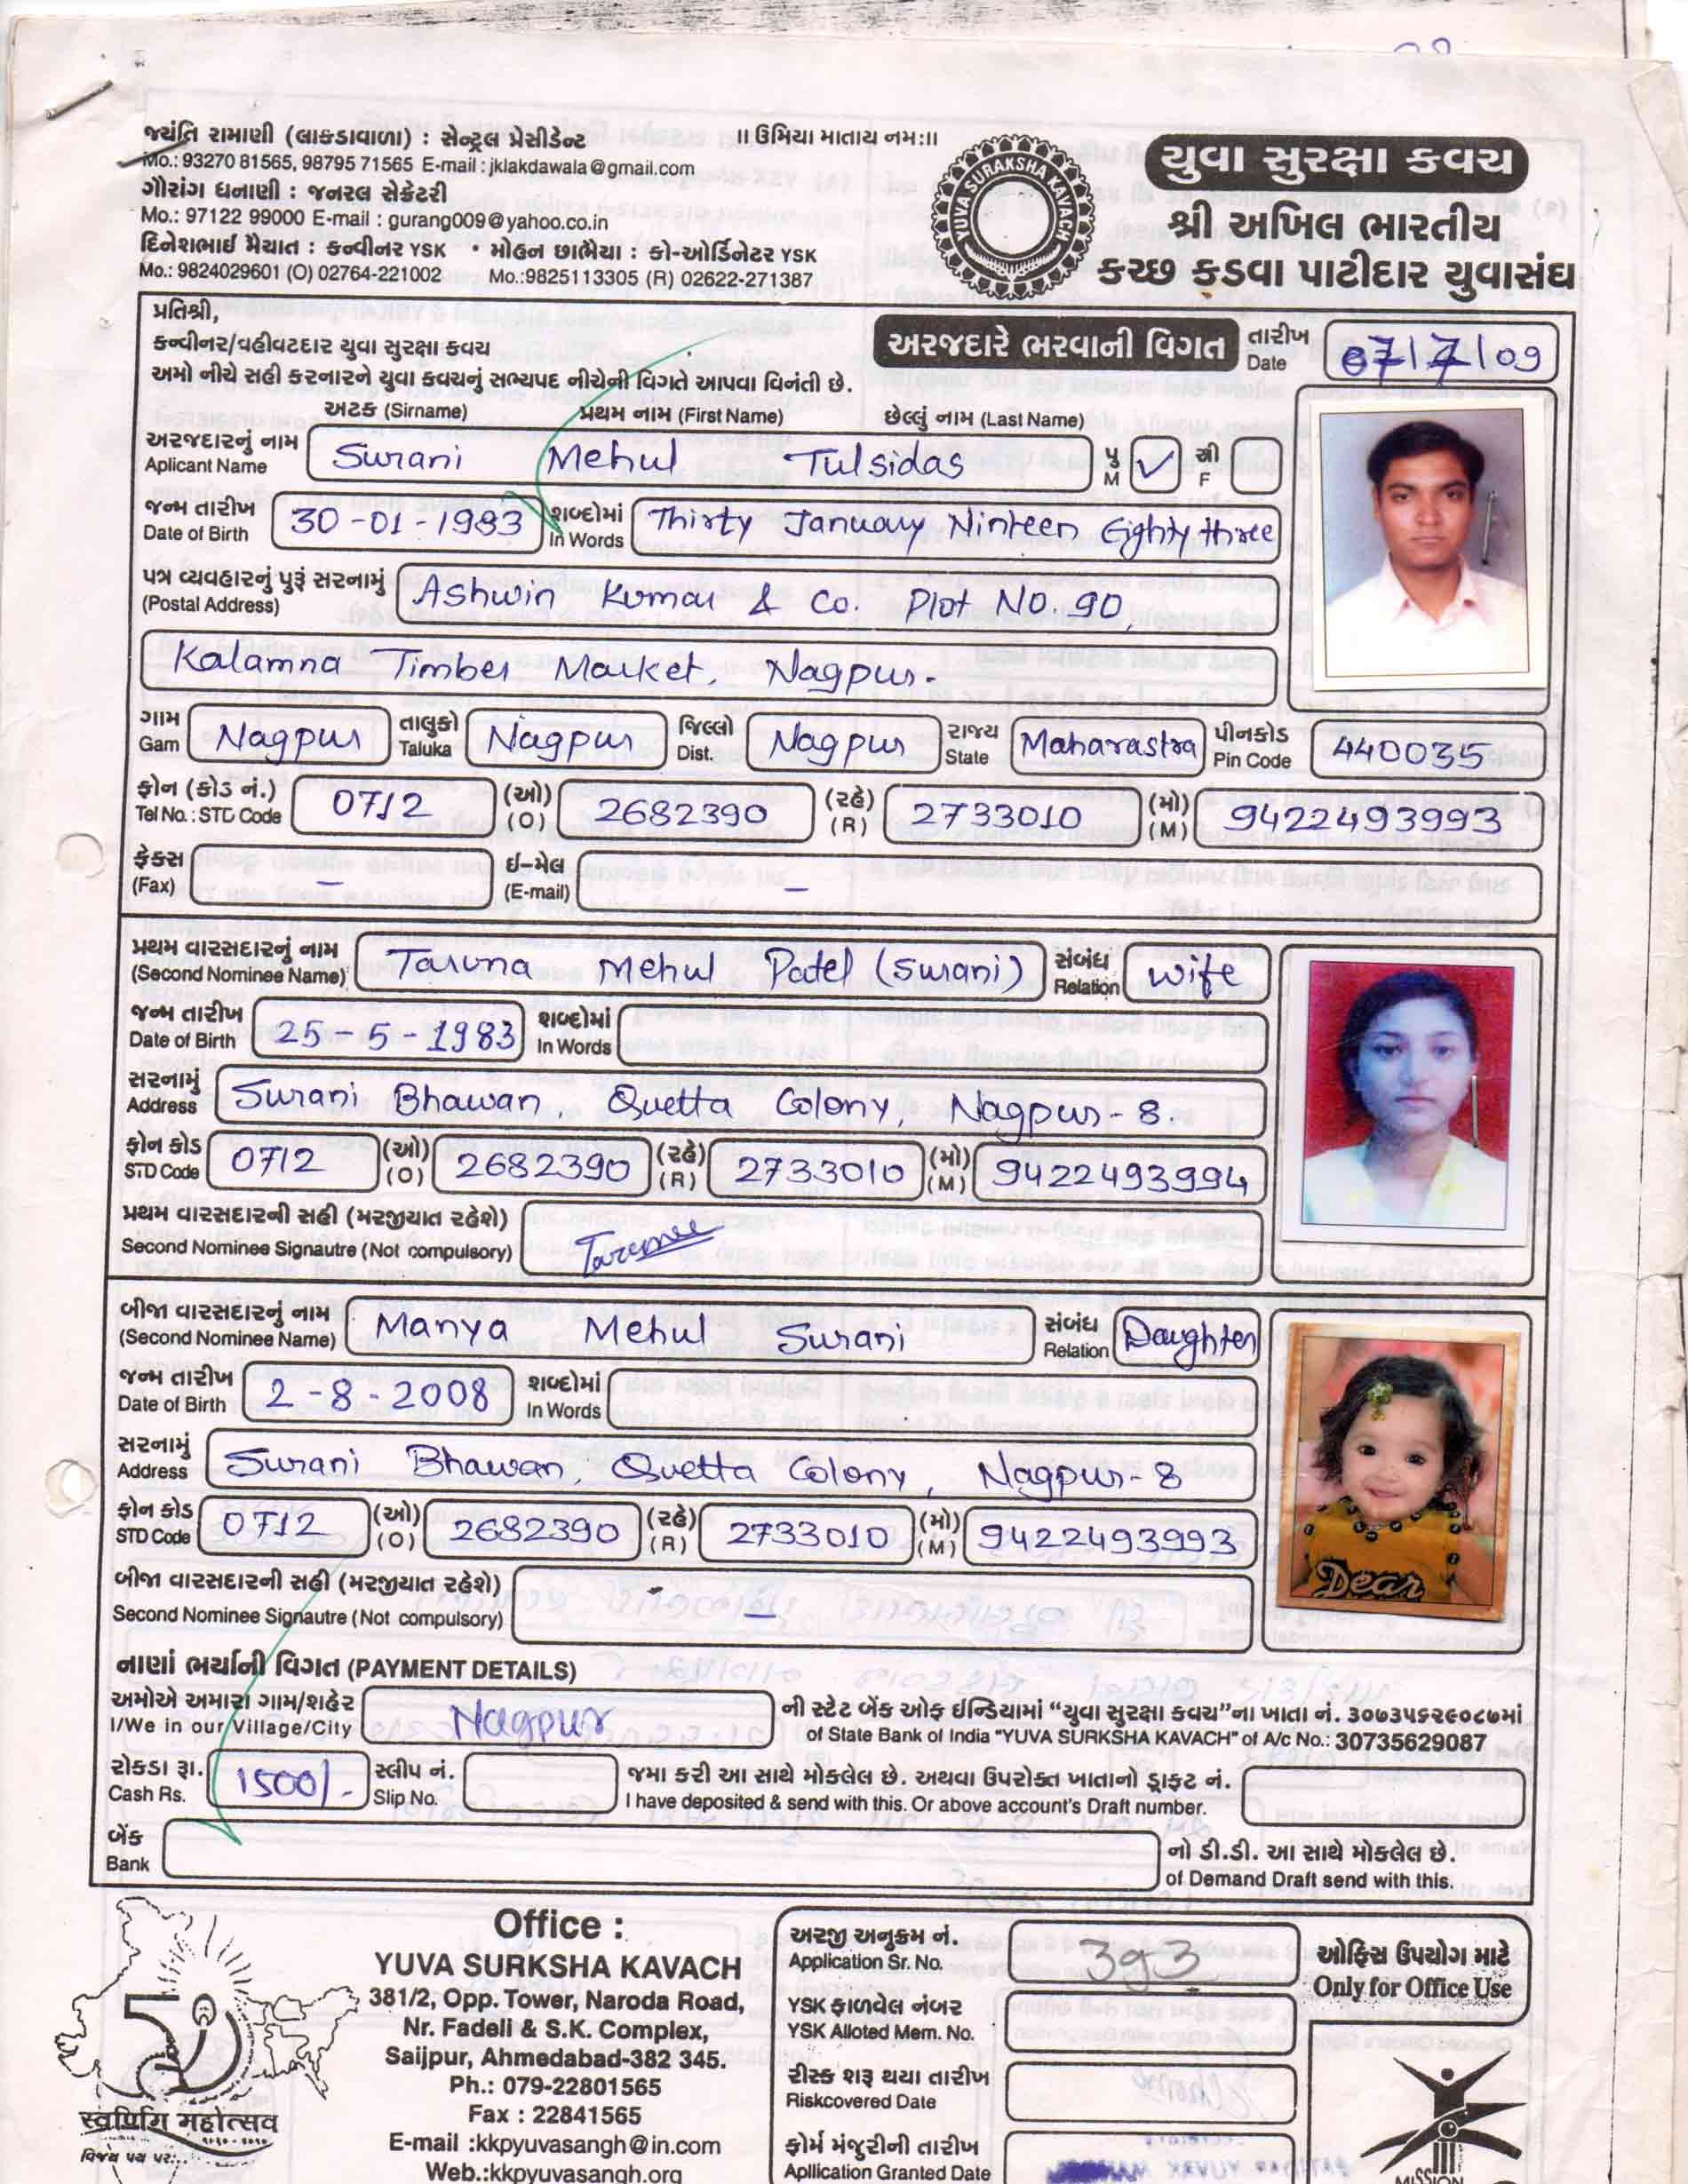 જયંતિ રામાણી (લાકડાવાળા) : સેન્ટ્રલ પ્રેસીડેન્ટ
Mo.: 93270 81565, 98795 71565 E-mail : jklakdawala@gmail.com
ગૌરાંગ ધનાણી : જનરલ સેક્રેટરી
Mo.: 97122 99000 E-mail : gurang009@yahoo.co.in
દિનેશભાઈ મૈયાત : કન્વીનર YSK • મોહન છાભૈયા : કો-ઓર્ડિનેટર YSK
Mo.: 9824029601 (O) 02764-221002 Mo.:9825113305 (R) 02622-271387
॥ ઉમિયા માતાય નમઃ॥
YUVA SURAKSHA KAVACH
યુવા સુરક્ષા કવચ
શ્રી અખિલ ભારતીય
કચ્છ કડવા પાટીદાર યુવાસંઘ
પ્રતિશ્રી,
કન્વીનર/વહીવટદાર યુવા સુરક્ષા કવચ
અમો નીચે સહી કરનારને યુવા કવચનું સભ્યપદ નીચેની વિગતે આપવા વિનંતી છે.
અરજદારે ભરવાની વિગત
તારીખ
Date 07/7/09
અટક (Sirname) પ્રથમ નામ (First Name) છેલ્લું નામ (Last Name)
અરજદારનું નામ
Aplicant Name Surani Mehul Tulsidas પુ M ✓ સ્ત્રી F
જન્મ તારીખ
Date of Birth 30-01-1983 શબ્દોમાં In Words Thirty January Ninteen Eighty three
પત્ર વ્યવહારનું પુરૂં સરનામું
(Postal Address) Ashwin Kumar & Co. Plot No. 90,
Kalamna Timber Market, Nagpur.
ગામ Gam Nagpur તાલુકો Taluka Nagpur જિલ્લો Dist. Nagpur રાજ્ય State Maharastra પીનકોડ Pin Code 440035
ફોન (કોડ નં.)
Tel No.: STD Code 0712 (ઓ) (O) 2682390 (રહે) (R) 2733010 (મો) (M) 9422493993
ફેક્સ (Fax) – ઈ-મેલ (E-mail) –
પ્રથમ વારસદારનું નામ
(Second Nominee Name) Taruna Mehul Patel (Surani) સંબંધ Relation wife
જન્મ તારીખ
Date of Birth 25-5-1983 શબ્દોમાં In Words
સરનામું
Address Surani Bhawan, Quetta Colony, Nagpur-8.
ફોન કોડ
STD Code 0712 (ઓ) (O) 2682390 (રહે) (R) 2733010 (મો) (M) 9422493994
પ્રથમ વારસદારની સહી (મરજીયાત રહેશે)
Second Nominee Signautre (Not compulsory)
બીજા વારસદારનું નામ
(Second Nominee Name) Manya Mehul Surani સંબંધ Relation Daughter
જન્મ તારીખ
Date of Birth 2-8-2008 શબ્દોમાં In Words
સરનામું
Address Surani Bhawan, Quetta Colony, Nagpur-8
ફોન કોડ
STD Code 0712 (ઓ) (O) 2682390 (રહે) (R) 2733010 (મો) (M) 9422493993
Dear
બીજા વારસદારની સહી (મરજીયાત રહેશે)
Second Nominee Signautre (Not compulsory) –
નાણાં ભર્યાની વિગત (PAYMENT DETAILS)
અમોએ અમારા ગામ/શહેર Nagpur ની સ્ટેટ બેંક ઓફ ઈન્ડિયામાં “યુવા સુરક્ષા કવચ”ના ખાતા નં. ૩૦૭૩૫૬૨૯૦૮૭માં
I/We in our Village/City of State Bank of India "YUVA SURKSHA KAVACH" of A/c No.: 30735629087
રોકડા રૂા. 1500/- સ્લીપ નં. જમા કરી આ સાથે મોકલેલ છે. અથવા ઉપરોક્ત ખાતાનો ડ્રાફ્ટ નં.
Cash Rs. Slip No. I have deposited & send with this. Or above account's Draft number.
બેંક નો ડી.ડી. આ સાથે મોકલેલ છે.
Bank of Demand Draft send with this.
50
स्वर्णिम महोत्सव
Office :
YUVA SURKSHA KAVACH
381/2, Opp. Tower, Naroda Road,
Nr. Fadeli & S.K. Complex,
Saijpur, Ahmedabad-382 345.
Ph.: 079-22801565
Fax : 22841565
E-mail :kkpyuvasangh@in.com
Web.:kkpyuvasangh.org
અરજી અનુક્રમ નં.
Application Sr. No. 393
YSK ફાળવેલ નંબર
YSK Alloted Mem. No.
રીસ્ક શરૂ થયા તારીખ
Riskcovered Date
ફોર્મ મંજુરીની તારીખ
Apllication Granted Date
ઓફિસ ઉપયોગ માટે
Only for Office Use
MISSION